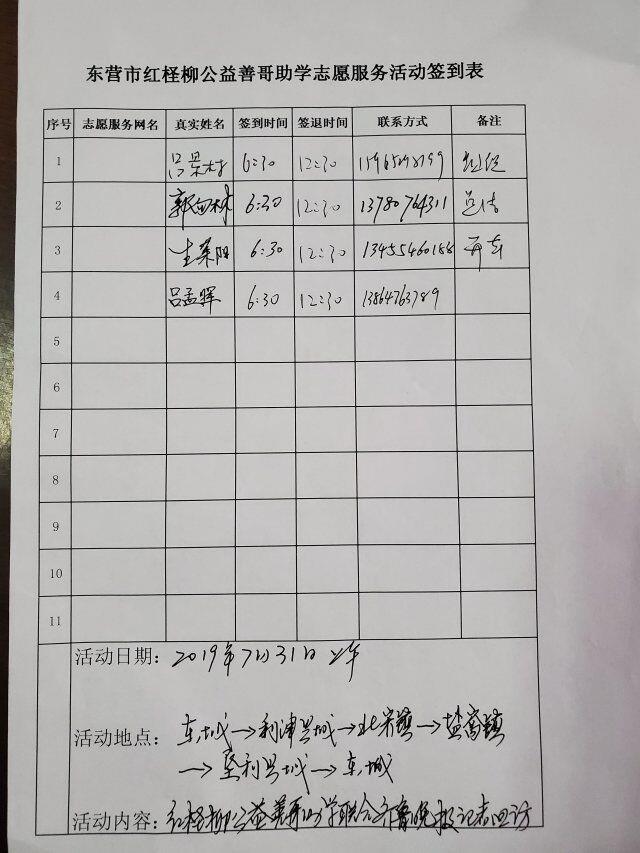 东营市红柽柳公益善哥助学志愿服务活动签到表
序号 志愿服务网名 真实姓名 签到时间 签退时间 联系方式 备注
1 吕景村 6:30 12:30
2 6:30 12:30 13780764311 总结
3 生莱阳 6:30 12:30 13455460188 开车
4 吕孟辉 6:30 12:30 13864763789
5
6
7
8
9
10
11
活动日期: 2019年7月31日 上午
活动地点: 东城→利津县城→北宋镇→盐窝镇
→垦利县城→东城
活动内容: 红柽柳公益善哥助学联合齐鲁晚报记者回访